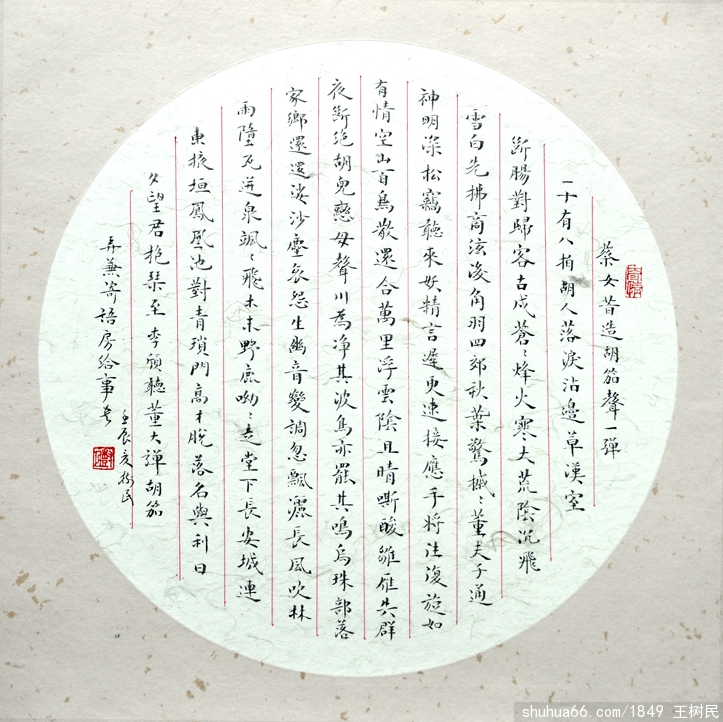 蔡女昔造胡笳聲一彈
一十有八拍胡人落淚沾邊草漢室
斷腸對歸客古戍蒼々烽火寒大荒陰沉飛
雪白先拂商弦後角羽四郊秋葉驚摵々董夫子通
神明深松竊聽來妖精言遲更速接應手將往復旋如
有情空山百鳥散還合萬里浮雲陰且晴嘶酸雛雁失群
夜斷絕胡兒戀母聲川為淨其波鳥亦罷其鳴烏珠部落
家鄉還還娑沙塵哀怨生幽音變調忽飄灑長風吹林
雨墮瓦迸泉颯々飛木末野鹿呦々走堂下長安城連
東掖垣鳳凰池對青瑣門高才脫落名與利日
夕望君抱琴至 李頎聽董大彈胡笳
弄兼寄語房給事
壬辰夏樹民
shuhua66.com/1849 王树民